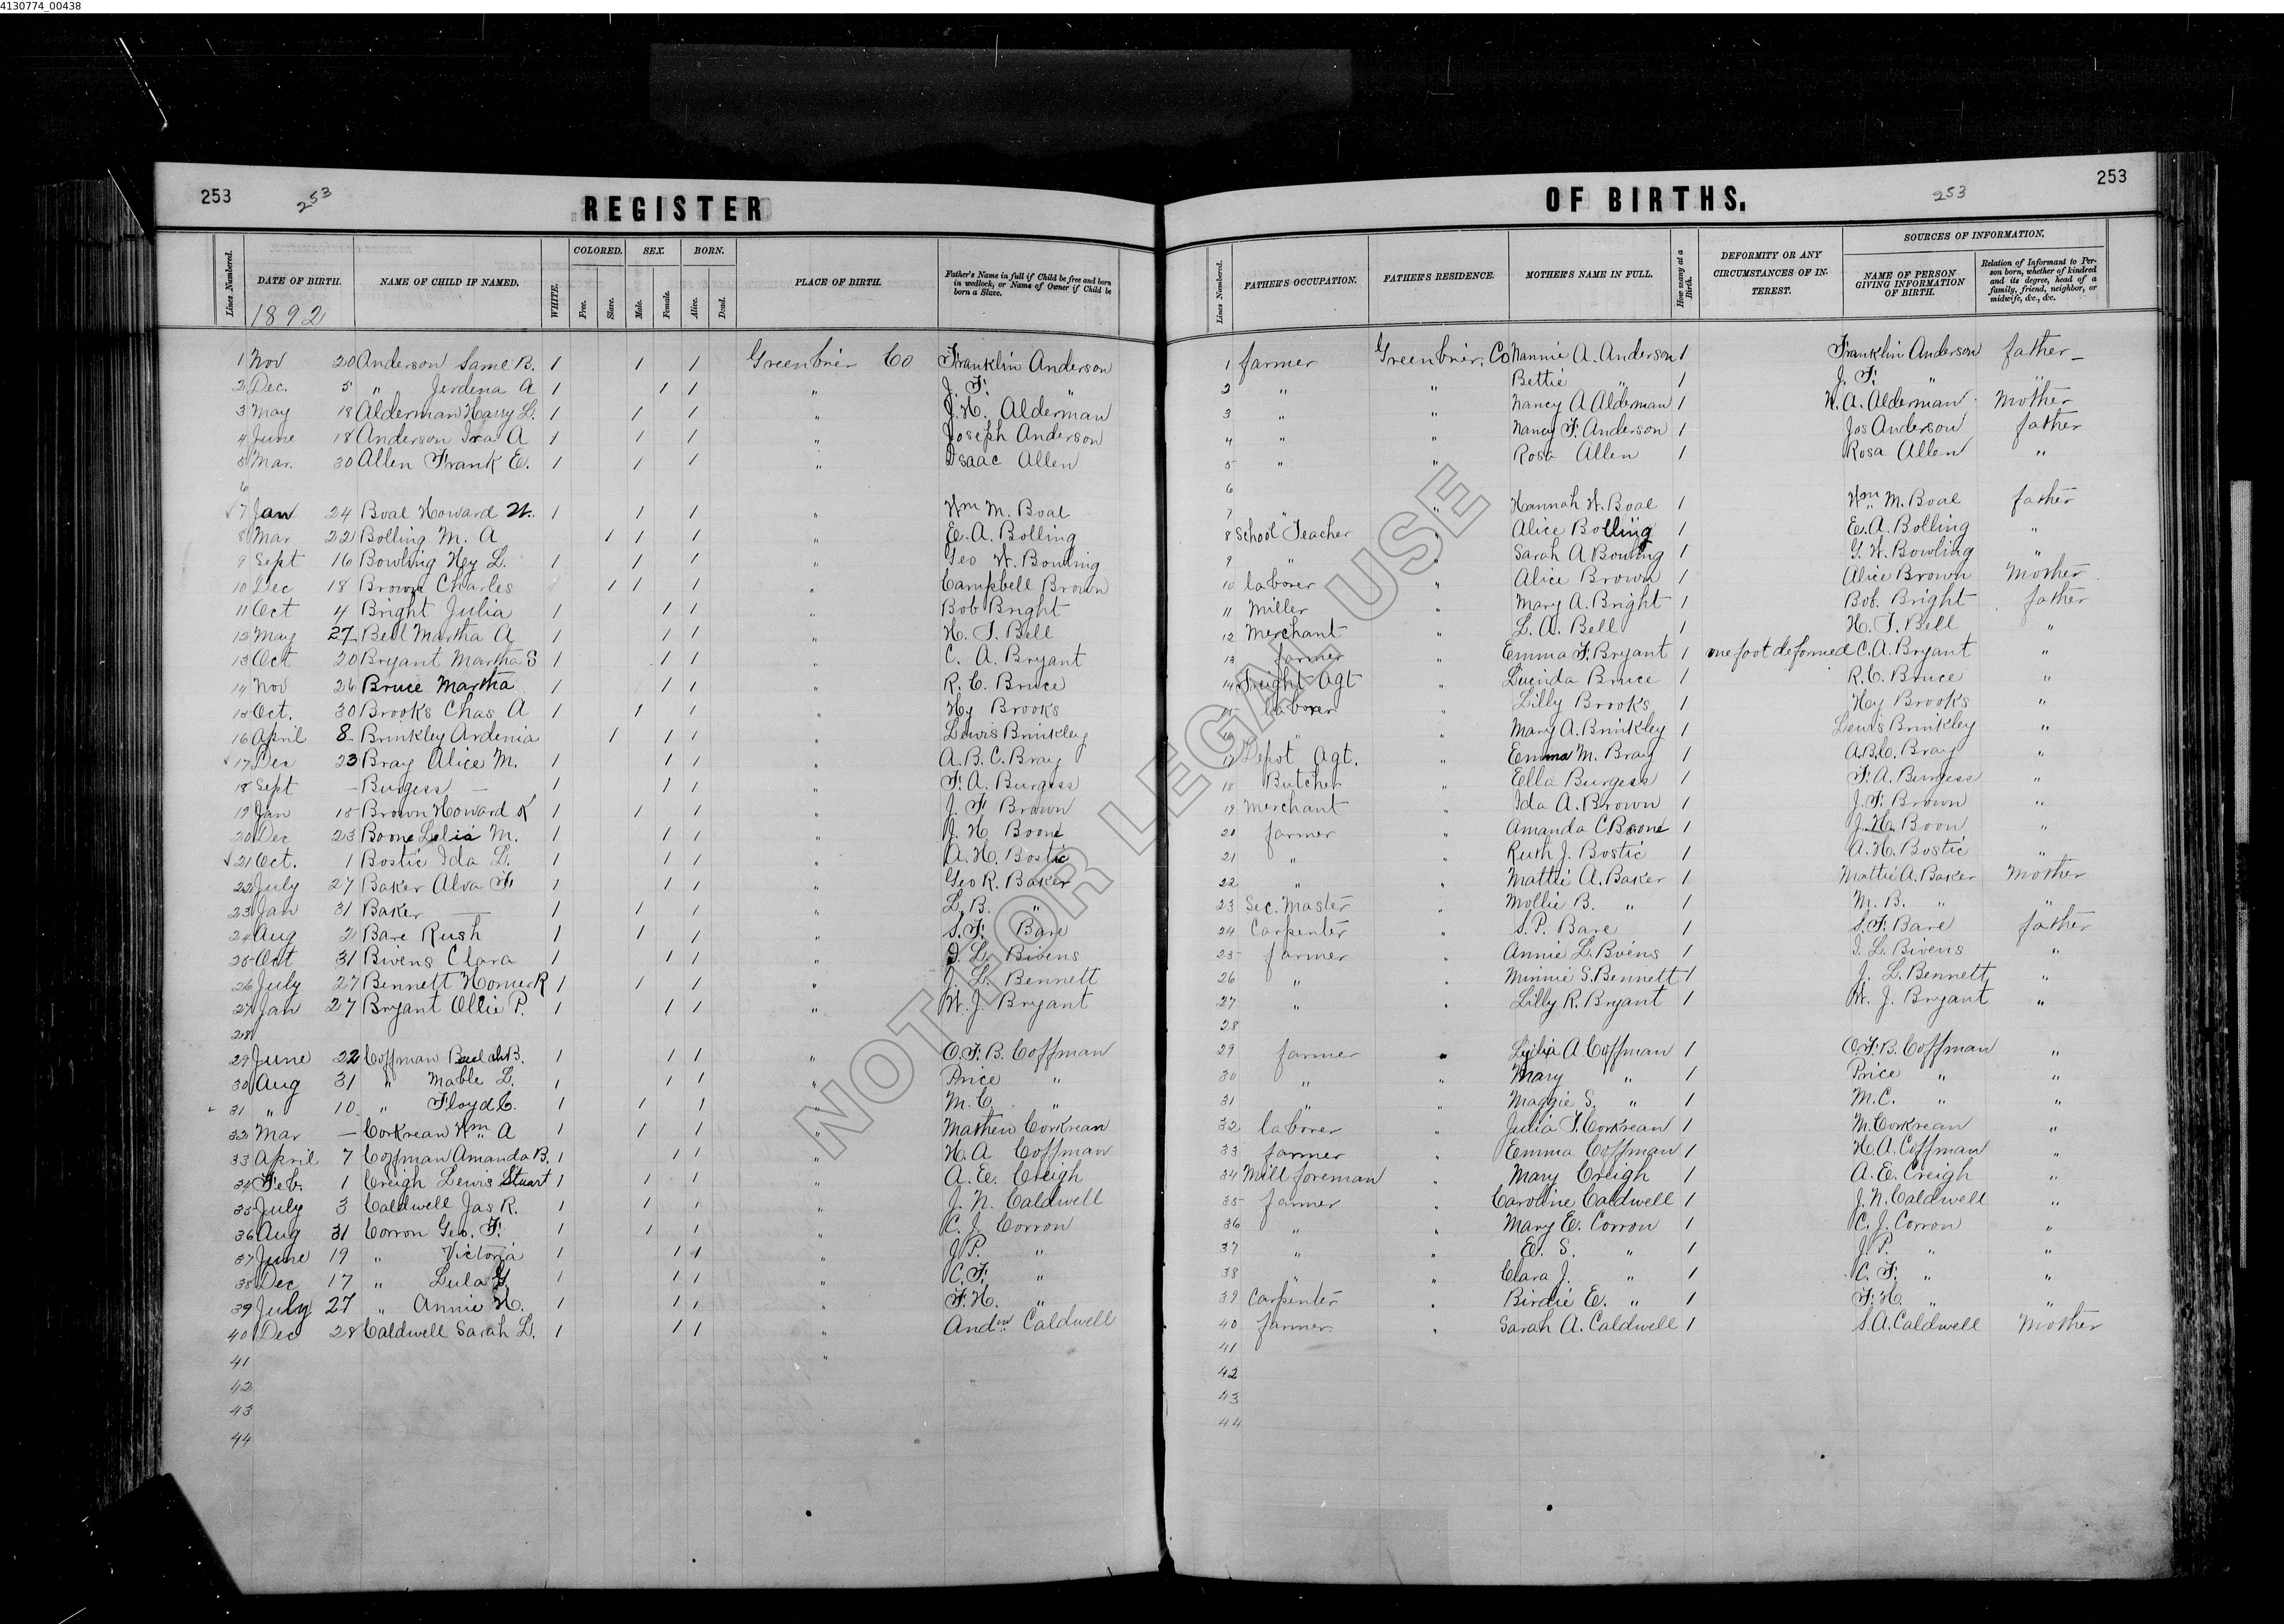 4130774_00438
253 253 REGISTER OF BIRTHS. 253 253
Lines Numbered. DATE OF BIRTH. NAME OF CHILD IF NAMED. WHITE. COLORED. Free. Slave. SEX. Male. Female. BORN. Alive. Dead. PLACE OF BIRTH. Father's Name in full if Child be free and born in wedlock, or Name of Owner if Child be born a Slave. Lines Numbered. FATHER'S OCCUPATION. FATHER'S RESIDENCE. MOTHER'S NAME IN FULL. How many at a Birth. DEFORMITY OR ANY CIRCUMSTANCES OF INTEREST. SOURCES OF INFORMATION. NAME OF PERSON GIVING INFORMATION OF BIRTH. Relation of Informant to Person born, whether of kindred and its degree, head of a family, friend, neighbor, or midwife, &c., &c.
1892
1 Nov 20 Anderson Saml B. 1 1 1 Greenbrier Co Franklin Anderson 1 farmer Greenbrier Co Nannie A. Anderson 1 Franklin Anderson father
2 Dec. 5 " Jerdena A 1 1 1 " J. F. " 2 " " Bettie " 1 J. F. " "
3 May 18 Alderman Harry L. 1 1 1 " J. H. Alderman 3 " " Nancy A Alderman 1 N. A. Alderman Mother
4 June 18 Anderson Ira A 1 1 1 " Joseph Anderson 4 " " Nancy F. Anderson 1 Jos Anderson father
5 Mar. 30 Allen Frank E. 1 1 1 " Isaac Allen 5 " " Rosa Allen 1 Rosa Allen "
6 6
7 Jan 24 Boal Howard W. 1 1 1 " Wm M. Boal 7 " " Hannah W. Boal 1 Wm M. Boal father
8 Mar 22 Bolling M. A 1 1 1 " E. A. Bolling 8 School Teacher " Alice Bolling 1 E. A. Bolling "
9 Sept 16 Bowling Hy L. 1 1 1 " Geo W. Bowling 9 " " Sarah A Bowling 1 G. W. Bowling "
10 Dec 18 Brown Charles 1 1 1 " Campbell Brown 10 laborer " Alice Brown 1 Alice Brown Mother
11 Oct 4 Bright Julia 1 1 1 " Bob Bright 11 Miller " Mary A. Bright 1 Bob. Bright father
12 May 27 Bell Martha A 1 1 1 " H. T. Bell 12 Merchant " L. A. Bell 1 H. T. Bell "
13 Oct 20 Bryant Martha S 1 1 1 " C. A. Bryant 13 farmer " Emma F. Bryant 1 one foot deformed C. A. Bryant "
14 Nov 26 Bruce Martha 1 1 1 " R. C. Bruce 14 Freight Agt " Lucinda Bruce 1 R. C. Bruce "
15 Oct. 30 Brooks Chas A 1 1 1 " Hy Brooks 15 laborer " Lilly Brooks 1 Hy Brooks "
16 April 8 Brinkley Ardenia 1 1 1 " Lewis Brinkley 16 " " Mary A. Brinkley 1 Lewis Brinkley "
17 Dec 23 Bray Alice M. 1 1 1 " A. B. C. Bray 17 Depot Agt. " Emma M. Bray 1 A. B. C. Bray "
18 Sept — Burgess — 1 1 1 " F. A. Burgess 18 Butcher " Ella Burgess 1 F. A. Burgess "
19 Jan 15 Brown Howard K 1 1 1 " J. F. Brown 19 Merchant " Ida A. Brown 1 J. F. Brown "
20 Dec 23 Boone Lelia M. 1 1 1 " J. H Boone 20 farmer " Amanda C. Boone 1 J. H. Boon "
21 Oct. 1 Bostic Ida L. 1 1 1 " A. H. Bostic 21 " " Ruth J. Bostic 1 A. H. Bostic "
22 July 27 Baker Alva F 1 1 1 " Geo R. Baker 22 " " Mattie A. Baker 1 Mattie A. Baker Mother
23 Jan 31 Baker — 1 1 1 " L. B. " 23 Sec. Master " Mollie B. " 1 M. B. " "
24 Aug 2 Bare Rush 1 1 1 " S. F. Bare 24 Carpenter " S. P. Bare 1 S. F. Bare father
25 Oct 31 Bivens Clara 1 1 1 " I. L. Bivens 25 farmer " Annie L. Bivens 1 I. L. Bivens "
26 July 27 Bennett Homer R 1 1 1 " J. L. Bennett 26 " " Minnie S. Bennett 1 J. L. Bennett "
27 Jan 27 Bryant Ollie P. 1 1 1 " W. J. Bryant 27 " " Lilly R. Bryant 1 W. J. Bryant "
28 28
29 June 22 Coffman Beulah B. 1 1 1 " O. F. B. Coffman 29 farmer " Lydia A Coffman 1 O. F. B. Coffman "
30 Aug 31 " Mable L. 1 1 1 " Price " 30 " " Mary " 1 Price " "
31 " 10 " Floyd C. 1 1 1 " M. C. " 31 " " Maggie S. " 1 M. C. " "
32 Mar — Corkrean Wm A 1 1 1 " Mathew Corkrean 32 laborer " Julia T. Corkrean 1 M. Corkrean "
33 April 7 Coffman Amanda B. 1 1 1 " H. A Coffman 33 farmer " Emma Coffman 1 H. A. Coffman "
34 Feb. 1 Creigh Lewis Stuart 1 1 1 " A. E. Creigh 34 Mill foreman " Mary Creigh 1 A. E. Creigh "
35 July 3 Caldwell Jas R. 1 1 1 " J. N. Caldwell 35 farmer " Caroline Caldwell 1 J. N. Caldwell "
36 Aug 31 Corron Geo. F. 1 1 1 " C. J. Corron 36 " " Mary E. Corron 1 C. J. Corron "
37 June 19 " Victoria 1 1 1 " J. P. " 37 " " E. S. " 1 J. P. " "
38 Dec 17 " Lula 1 1 1 " C. F. " 38 " " Clara J. " 1 C. F. " "
39 July 27 " Annie H. 1 1 1 " F. H. " 39 Carpenter " Birdie E. " 1 F. H. " "
40 Dec 28 Caldwell Sarah L. 1 1 1 " Andw Caldwell 40 farmer " Sarah A. Caldwell 1 S. A. Caldwell Mother
41 " 41
42 42
43 43
44 44
NOT FOR LEGAL USE